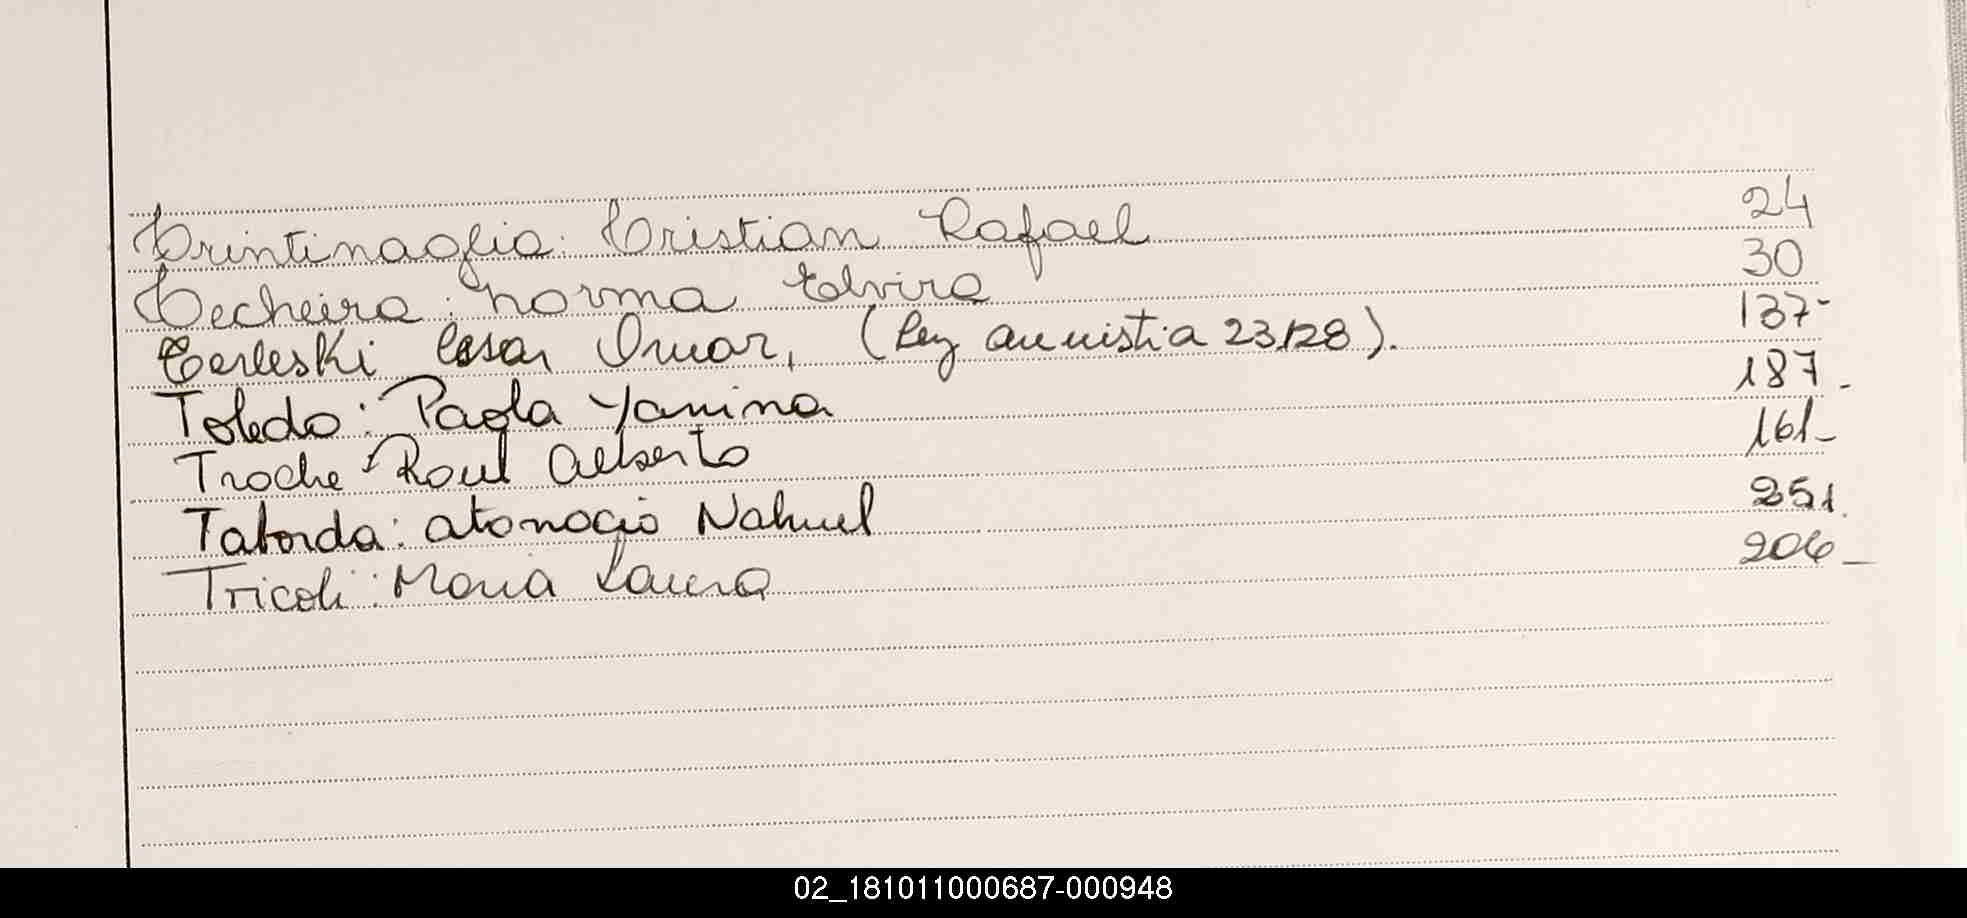 Trintinaglia: Cristian Rafael 24
Techeira: Norma Elvira 30
Terleski Cesar Omar, (Ley amnistia 23.128). 137-
Toledo: Paola Yanina 187-
Troche Raul Alberto 161-
Taborda: atanacio Nahuel 251.
Tricoli: Maria Laura 206-
02_181011000687-000948